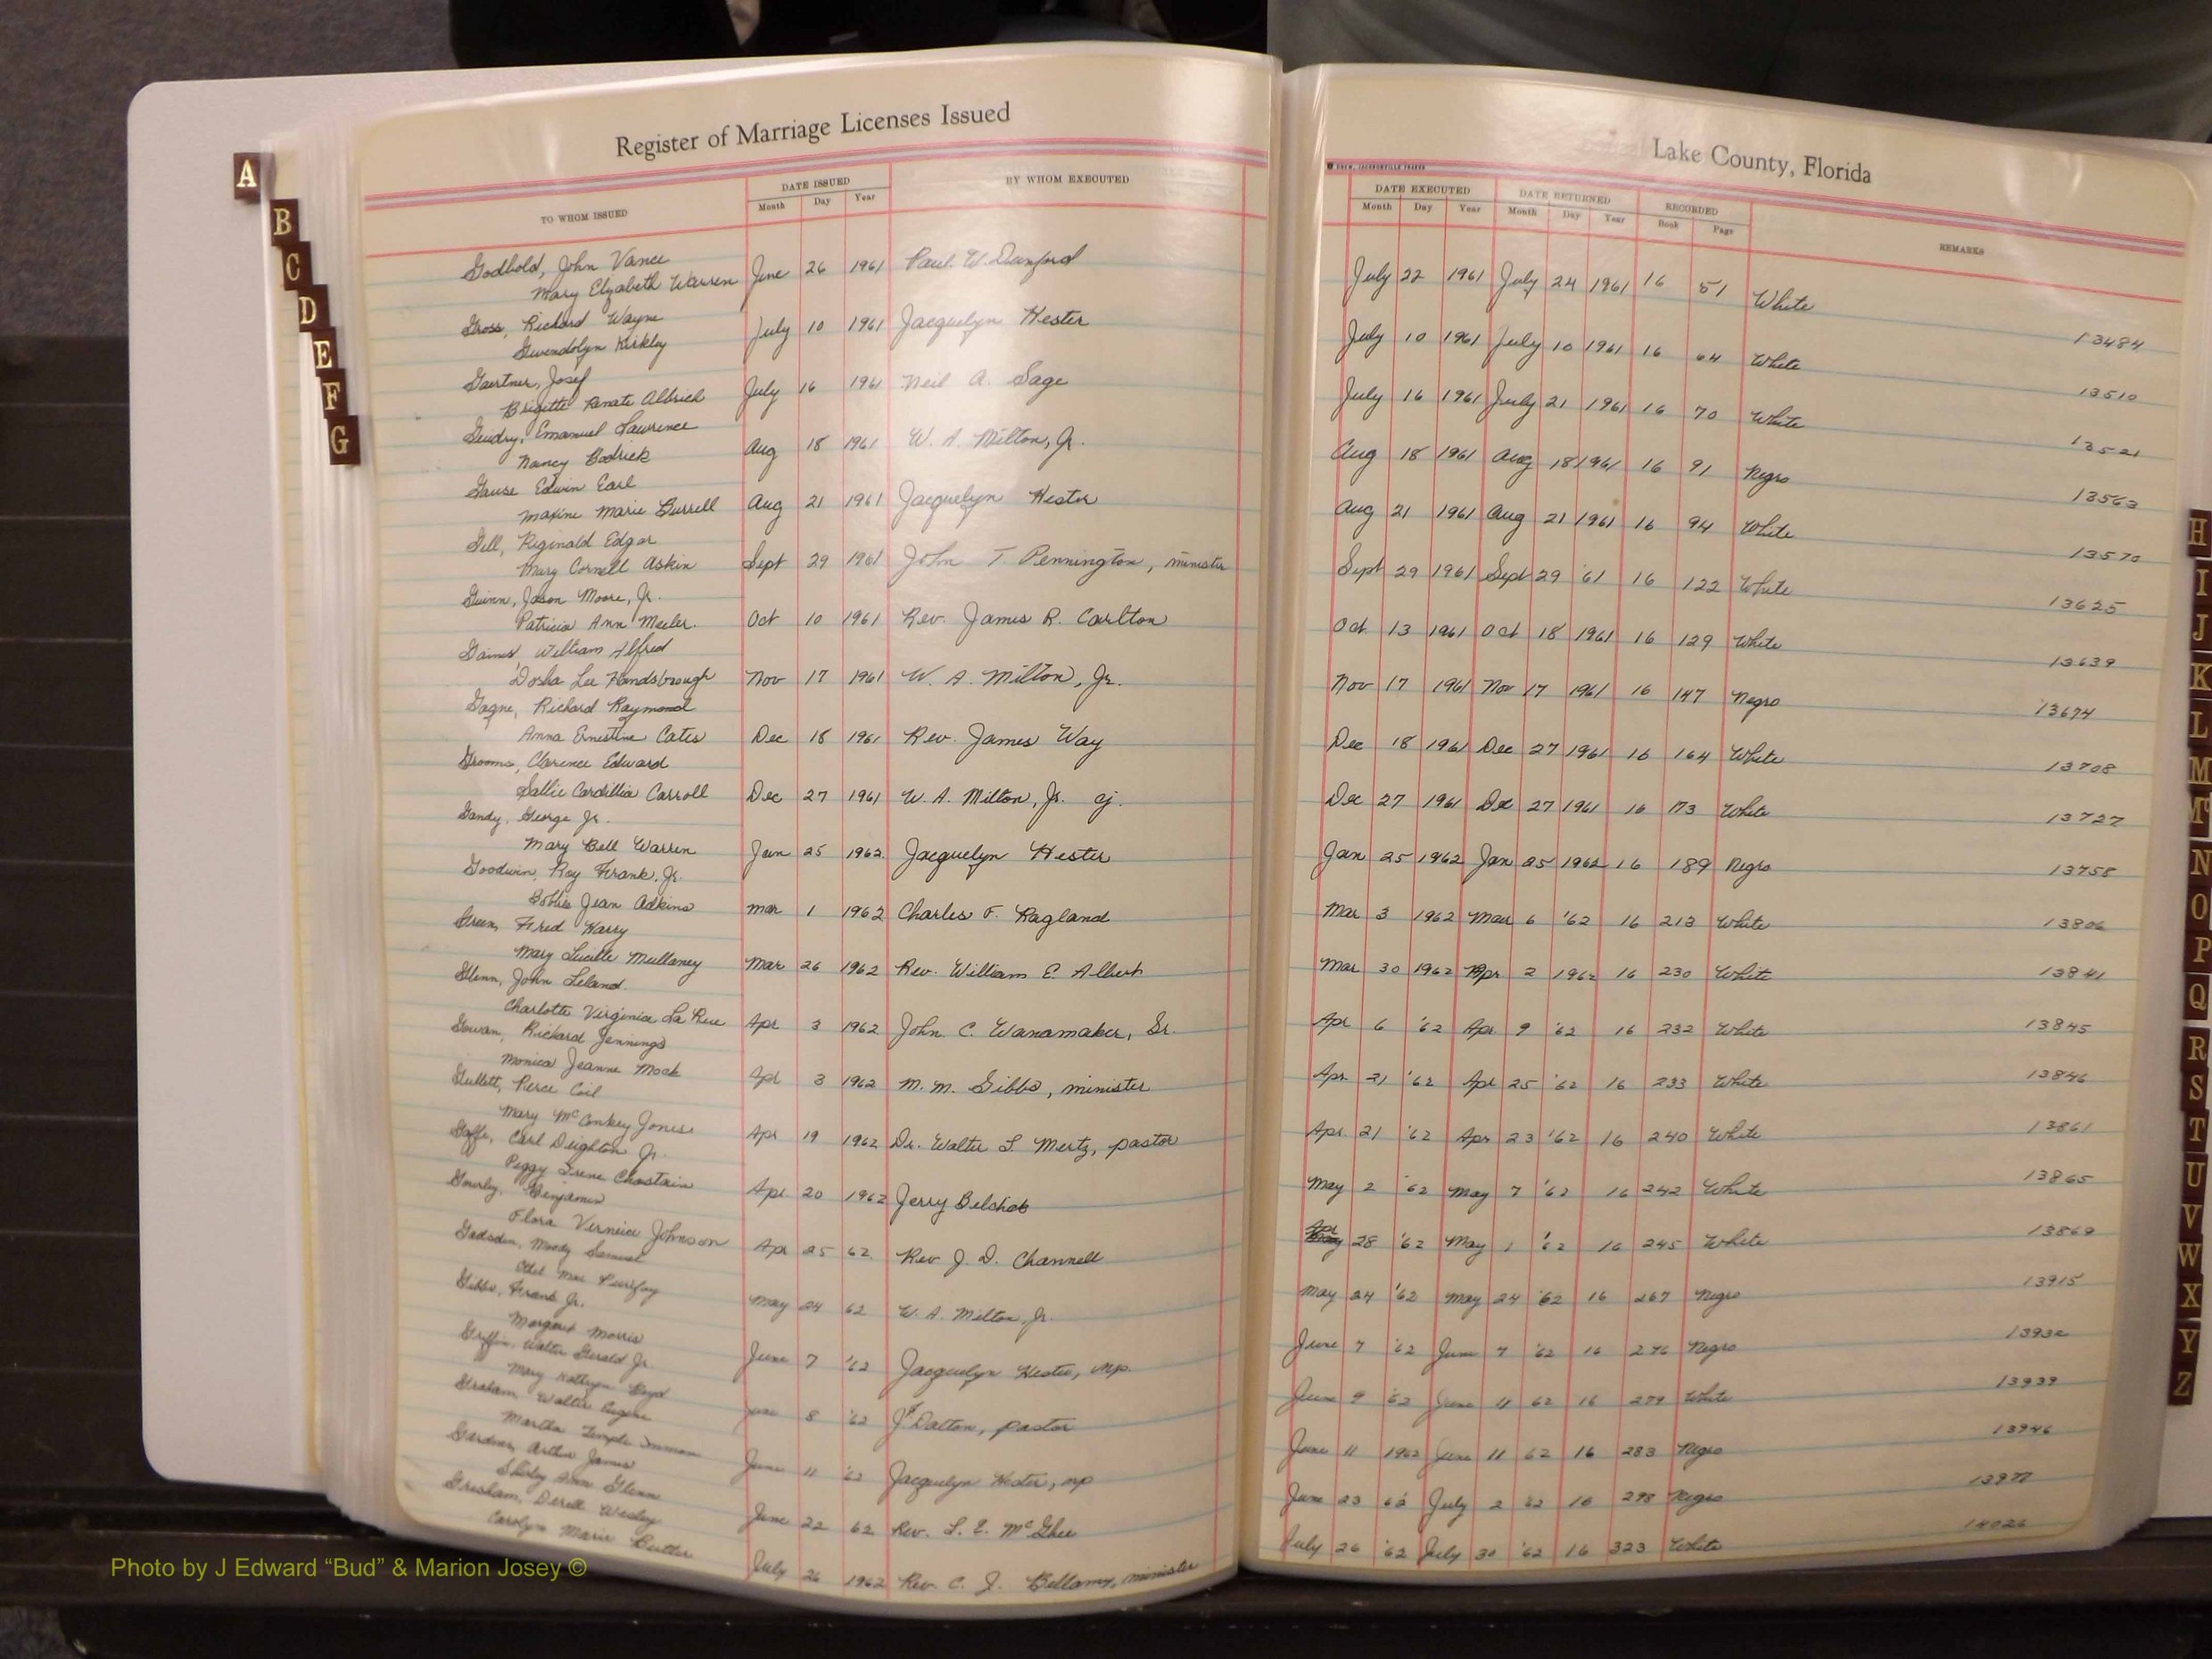 Register of Marriage Licenses Issued
TO WHOM ISSUED DATE ISSUED BY WHOM EXECUTED
Month Day Year
Godbold, John Vance
Mary Elizabeth Warren June 26 1961 Paul W. Dunford
Gross, Richard Wayne
Gwendolyn Kirkley July 10 1961 Jacquelyn Hester
Gaertner, Josef
Brigitte Renate Albrich July 16 1961 Neil A. Sage
Emanuel Lawrence
Nancy Aug 18 1961 W. A. Milton, Jr.
Gause Edwin Earl
Maxine Marie Burrell Aug 21 1961 Jacquelyn Hester
Gill, Reginald Edgar
Mary Cornell Askin Sept 29 1961 John T Pennington, minister
Guinn, Jason Moore, Jr.
Patricia Ann Oct 10 1961 Rev. James R. Carlton
Gaines, William Alfred
Dosha Lee Handsbrough Nov 17 1961 W. A. Milton, Jr.
Gagne, Richard Raymond
Anna Ernestine Cates Dec 18 1961 Rev. James Way
Grooms, Clarence Edward
Sallie Cardillia Carroll Dec 27 1961 W. A. Milton, Jr. cj.
Gandy, George Jr.
Mary Bell Warren Jan 25 1962 Jacquelyn Hester
Goodwin, Roy Frank, Jr.
Bobbie Jean Adkins Mar 1 1962 Charles F. Ragland
Green, Fred Harry
Mary Lucille Mullaney Mar 26 1962 Rev. William E. Albert
Glenn, John Leland
Charlotte Virginia La Rue Apr 3 1962 John C. Wanamaker, Sr.
Gowan, Richard Jennings
Monica Jeanne Mock Apr 3 1962 M. M. Gibbs, minister
Gullett, Pierce Coil
Mary McConkey Jones Apr 19 1962 Dr. Walter L. Mertz, pastor
Goffe, Carl Deighton Jr.
Peggy Irene Chastain Apr 20 1962 Jerry Belcher
Gourley, Benjamin
Flora Verneice Johnson Apr 25 62 Rev J. D. Channell
Gadsden, Moody Samuel
Ethel Mae Purifoy May 24 62 W. A. Milton, Jr.
Gibbs, Frank Jr.
Margaret Morris June 7 '62 Jacquelyn Hester, np.
Griffin, Walter Gerald Jr.
Mary Kathryn Boyd June 8 '62 Dalton, pastor
Graham, Walter Eugene
Martha Temple Inman June 11 '62 Jacquelyn Hester, np
Gardner, Arthur James
Shirley Ann Glenn June 22 62 Rev. L. E. McGhee
Grisham, Derell Wesley
Carolyn Marie Butler July 26 1962 Rev. C. J. Bellamy, minister
Lake County, Florida
DREW, JACKSONVILLE
DATE EXECUTED DATE RETURNED RECORDED REMARKS
Month Day Year Month Day Year Book Page
July 22 1961 July 24 1961 16 51 White 13484
July 10 1961 July 10 1961 16 64 White 13510
July 16 1961 July 21 1961 16 70 White 13521
Aug 18 1961 Aug 18 1961 16 91 Negro 13563
Aug 21 1961 Aug 21 1961 16 94 White 13570
Sept 29 1961 Sept 29 '61 16 122 White 13625
Oct. 13 1961 Oct 18 1961 16 129 White 13639
Nov 17 1961 Nov 17 1961 16 147 Negro 13674
Dec 18 1961 Dec 27 1961 16 164 White 13708
Dec 27 1961 Dec 27 1961 16 173 White 13727
Jan 25 1962 Jan 25 1962 16 189 Negro 13758
Mar 3 1962 Mar 6 '62 16 213 White 13806
Mar 30 1962 Apr. 2 1962 16 230 White 13841
Apr 6 '62 Apr. 9 '62 16 232 White 13845
Apr. 21 '62 Apr 25 '62 16 233 White 13846
Apr. 21 '62 Apr 23 '62 16 240 White 13861
May 2 '62 May 7 '62 16 242 White 13865
Apr 28 '62 May 1 '62 16 245 White 13869
May 24 '62 May 24 '62 16 267 Negro 13915
June 7 '62 June 7 '62 16 276 Negro 13932
June 9 '62 June 11 62 16 279 White 13939
June 11 1962 June 11 62 16 283 Negro 13946
June 23 62 July 2 '62 16 298 Negro 13977
July 26 '62 July 30 '62 16 323 White 14026
A
B
C
D
E
F
G
H
I
J
K
L
M
Mc
N
O
P
Q
R
S
T
U
V
W
X
Y
Z
Photo by J Edward “Bud” & Marion Josey ©